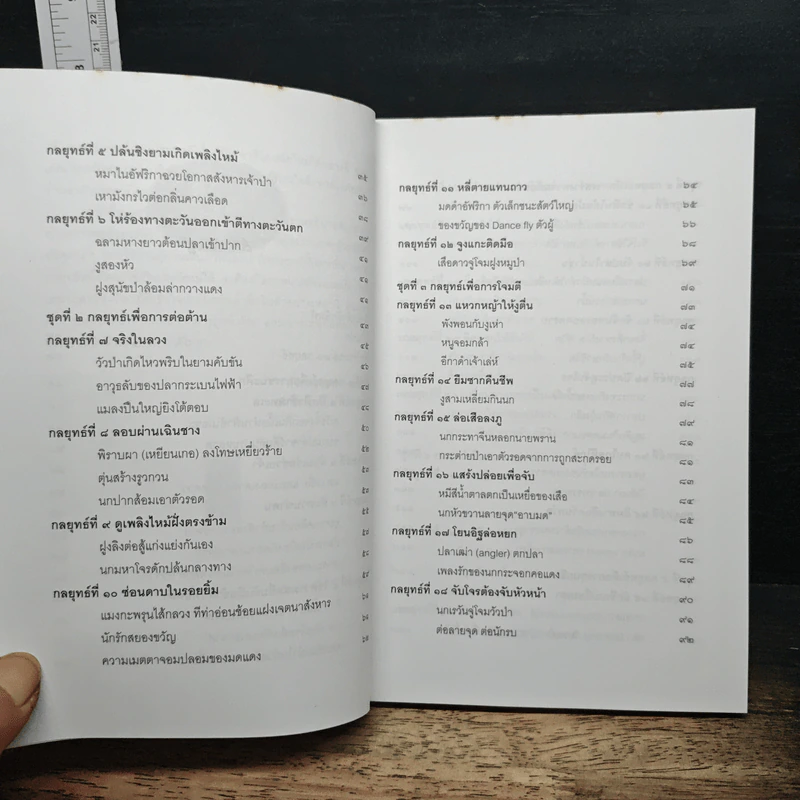 กลยุทธ์ที่ ๕ ปล้นชิงยามเกิดเพลิงไหม้
หมาในอัฟริกาฉวยโอกาสสังหารเจ้าป่า ๓๕
เหามังกรไวต่อกลิ่นคาวเลือด ๓๖
กลยุทธ์ที่ ๖ โห่ร้องทางตะวันออกเข้าตีทางตะวันตก ๓๘
ฉลามหางยาวต้อนปลาเข้าปาก ๓๙
งูสองหัว
ฝูงสุนัขป่าล้อมล่ากวางแดง
ชุดที่ ๒ กลยุทธ์เพื่อการต่อต้าน
กลยุทธ์ที่ ๗ จริงในลวง
วัวป่าเกิดไหวพริบในยามคับขัน
อาวุธลับของปลากระเบนไฟฟ้า
แมลงปืนใหญ่ยิงโต้ตอบ
กลยุทธ์ที่ ๘ ลอบผ่านเฉินชาง
พิราบผา (เหยียนเกอ) ลงโทษเหยี่ยวร้าย
ตุ่นสร้างรูวกวน
นกปากส้อมเอาตัวรอด
กลยุทธ์ที่ ๙ ดูเพลิงไหม้ฝั่งตรงข้าม
ฝูงลิงต่อสู้แก่งแย่งกันเอง
นกมหาโจรดักปล้นกลางทาง
กลยุทธ์ที่ ๑๐ ซ่อนดาบในรอยยิ้ม
แมงกะพรุนไส้กลวง ทีท่าอ่อนช้อยแฝงเจตนาสังหาร
นักรักสยองขวัญ
ความเมตตาจอมปลอมของมดแดง
กลยุทธ์ที่ ๑๑ หลี่ตายแทนถาว ๖๔
มดดำอัฟริกา ตัวเล็กชนะสัตว์ใหญ่ ๖๕
ของขวัญของ Dance fly ตัวผู้ ๖๖
กลยุทธ์ที่ ๑๒ จูงแกะติดมือ ๖๘
เสือดาวจู่โจมฝูงหมูป่า ๖๙
ชุดที่ ๓ กลยุทธ์เพื่อการโจมตี ๗๑
กลยุทธ์ที่ ๑๓ แหวกหญ้าให้งูตื่น ๗๓
พังพอนกับงูเห่า ๗๔
หนูจอมกล้า ๗๔
อีกาดำเจ้าเล่ห์ ๗๕
กลยุทธ์ที่ ๑๔ ยืมซากคืนชีพ ๗๗
งูสามเหลี่ยมกินนก ๗๘
กลยุทธ์ที่ ๑๕ ล่อเสือลงภู ๗๙
นกกระทาจีนหลอกนายพราน ๘๑
กระต่ายป่าเอาตัวรอดจากการถูกสะกดรอย ๘๑
กลยุทธ์ที่ ๑๖ แสร้งปล่อยเพื่อจับ ๘๓
หมีสีน้ำตาลตกเป็นเหยื่อของเสือ ๘๔
นกหัวขวานลายจุด"อาบมด" ๘๕
กลยุทธ์ที่ ๑๗ โยนอิฐล่อหยก ๘๖
ปลาเฒ่า (angler) ตกปลา ๘๘
เพลงรักของนกกระจอกคอแดง ๘๙
กลยุทธ์ที่ ๑๘ จับโจรต้องจับหัวหน้า ๙๐
นกเรวันจู่โจมวัวป่า ๙๑
ต่อลายจุด ต่อนักรบ ๙๒